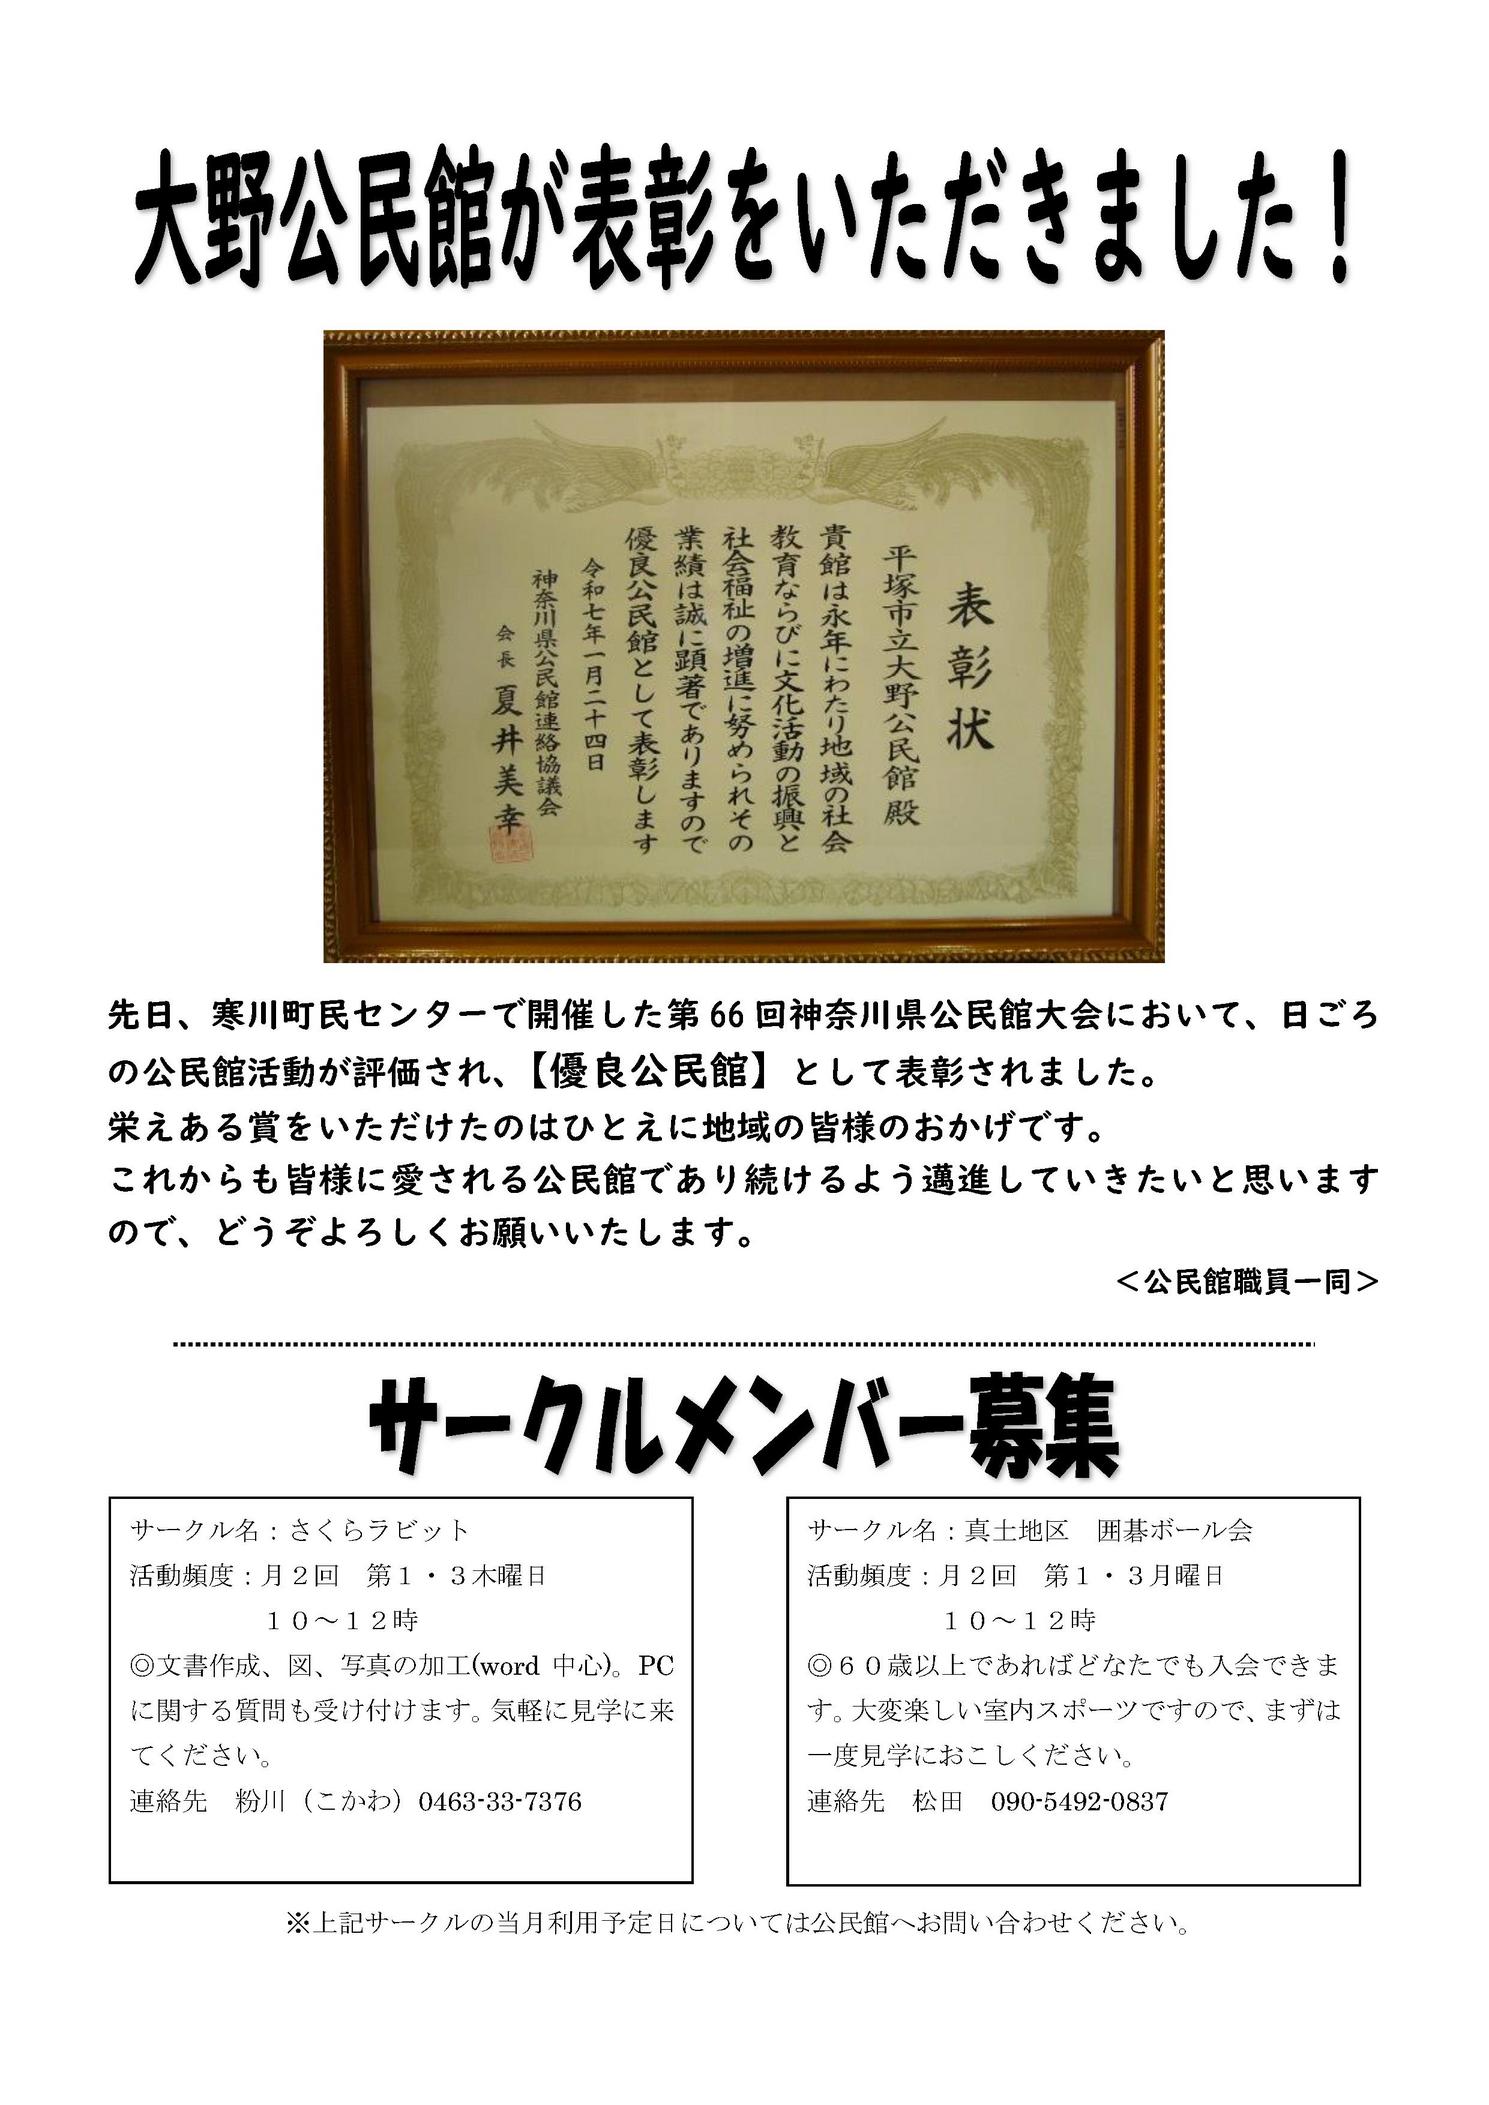 大野公民館が表彰をいただきました！
表彰状
平塚市立大野公民館殿
貴館は永年にわたり地域の社会
教育ならびに文化活動の振興と
社会福祉の増進に努められその
業績は誠に顕著でありますので
優良公民館として表彰します
令和七年一月二十四日
神奈川県公民館連絡協議会
会長 夏井美幸
先日、寒川町民センターで開催した第66回神奈川県公民館大会において、日ごろ
の公民館活動が評価され、【優良公民館】として表彰されました。
栄えある賞をいただけたのはひとえに地域の皆様のおかげです。
これからも皆様に愛される公民館であり続けるよう邁進していきたいと思います
ので、どうぞよろしくお願いいたします。
＜公民館職員一同＞
サークルメンバー募集
サークル名：さくらラビット
活動頻度：月２回　第１・３木曜日
１０～１２時
◎文書作成、図、写真の加工(word 中心)。PC
に関する質問も受け付けます。気軽に見学に来
てください。
連絡先　粉川（こかわ）0463-33-7376
サークル名：真土地区　囲碁ボール会
活動頻度：月２回　第１・３月曜日
１０～１２時
◎６０歳以上であればどなたでも入会できま
す。大変楽しい室内スポーツですので、まずは
一度見学におこしください。
連絡先　松田　090-5492-0837
※上記サークルの当月利用予定日については公民館へお問い合わせください。